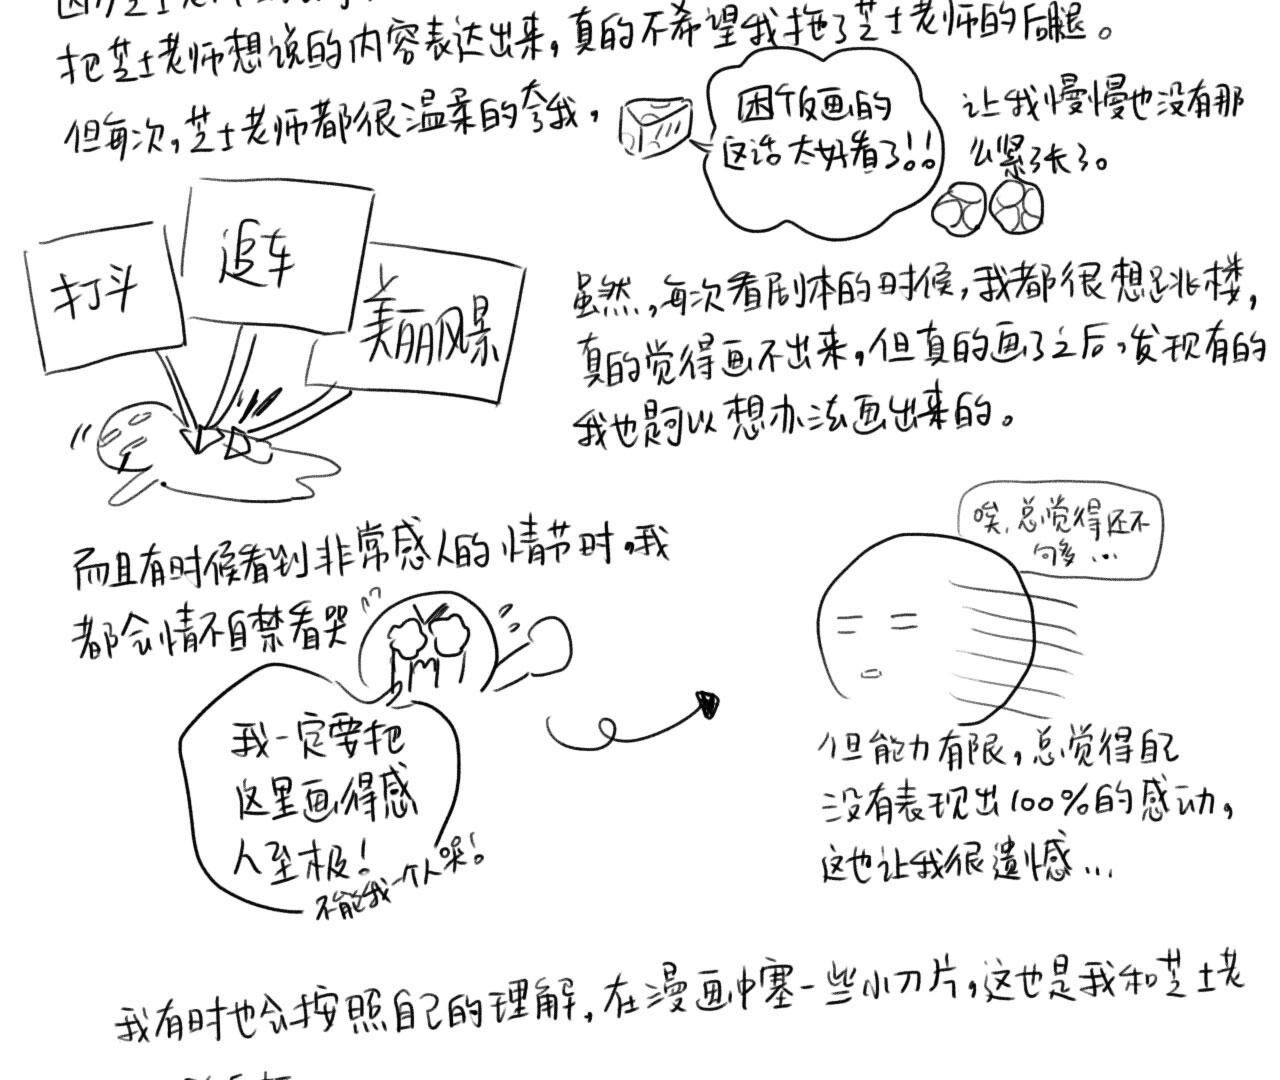 把芝士老师想说的内容表达出来，真的不希望我拖了芝士老师的后腿。
但每次，芝士老师都很温柔的夸我，
困饭画的
这话太好看了!!
让我慢慢也没有那
么紧张了。
打斗
追车
美丽风景
虽然，每次看剧本的时候，我都很想跳楼，
真的觉得画不出来，但真的画了之后，发现有的
我也是可以想办法画出来的。
而且有时候看到非常感人的情节时，我
都会情不自禁看哭
我一定要把
这里画得感
人至极！
不能我一个人哭！
唉，总觉得还不
够…
但能力有限，总觉得自己
没有表现出100%的感动，
这也让我很遗憾…
我有时也会按照自己的理解，在漫画中塞一些小刀片，这也是我和芝士老